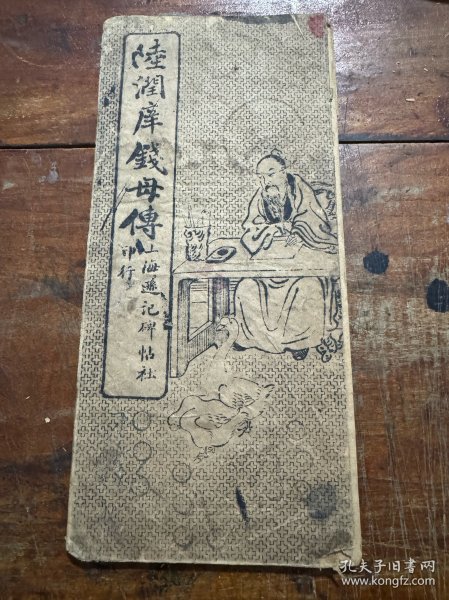 陸潤庠錢母傳
上海
記碑帖社
印行
孔夫子旧书网
www.kongfz.com